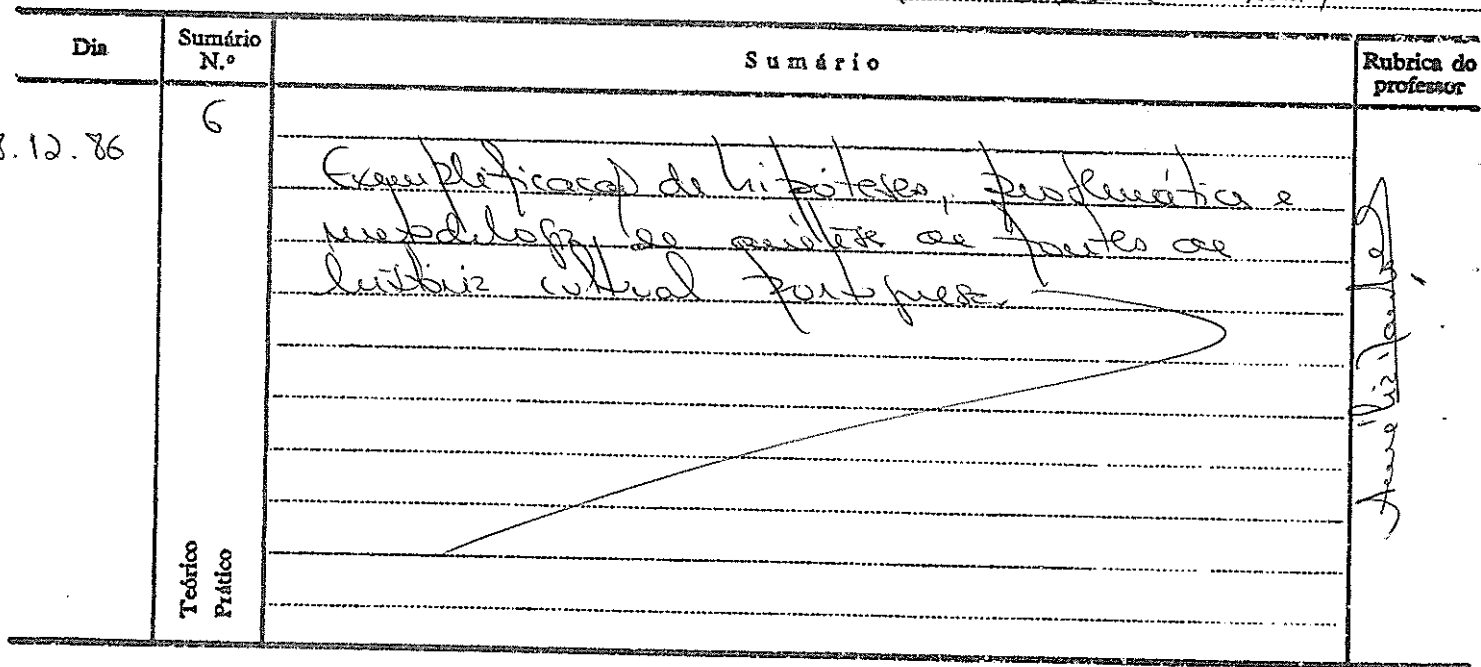 Dia
Sumário N.º
Sumário
Rubrica do professor
.12.86
6
Exemplificação de hipóteses, problemática e
metodologia de análise de fontes de
história cultural portuguesa.
Teórico
Prático